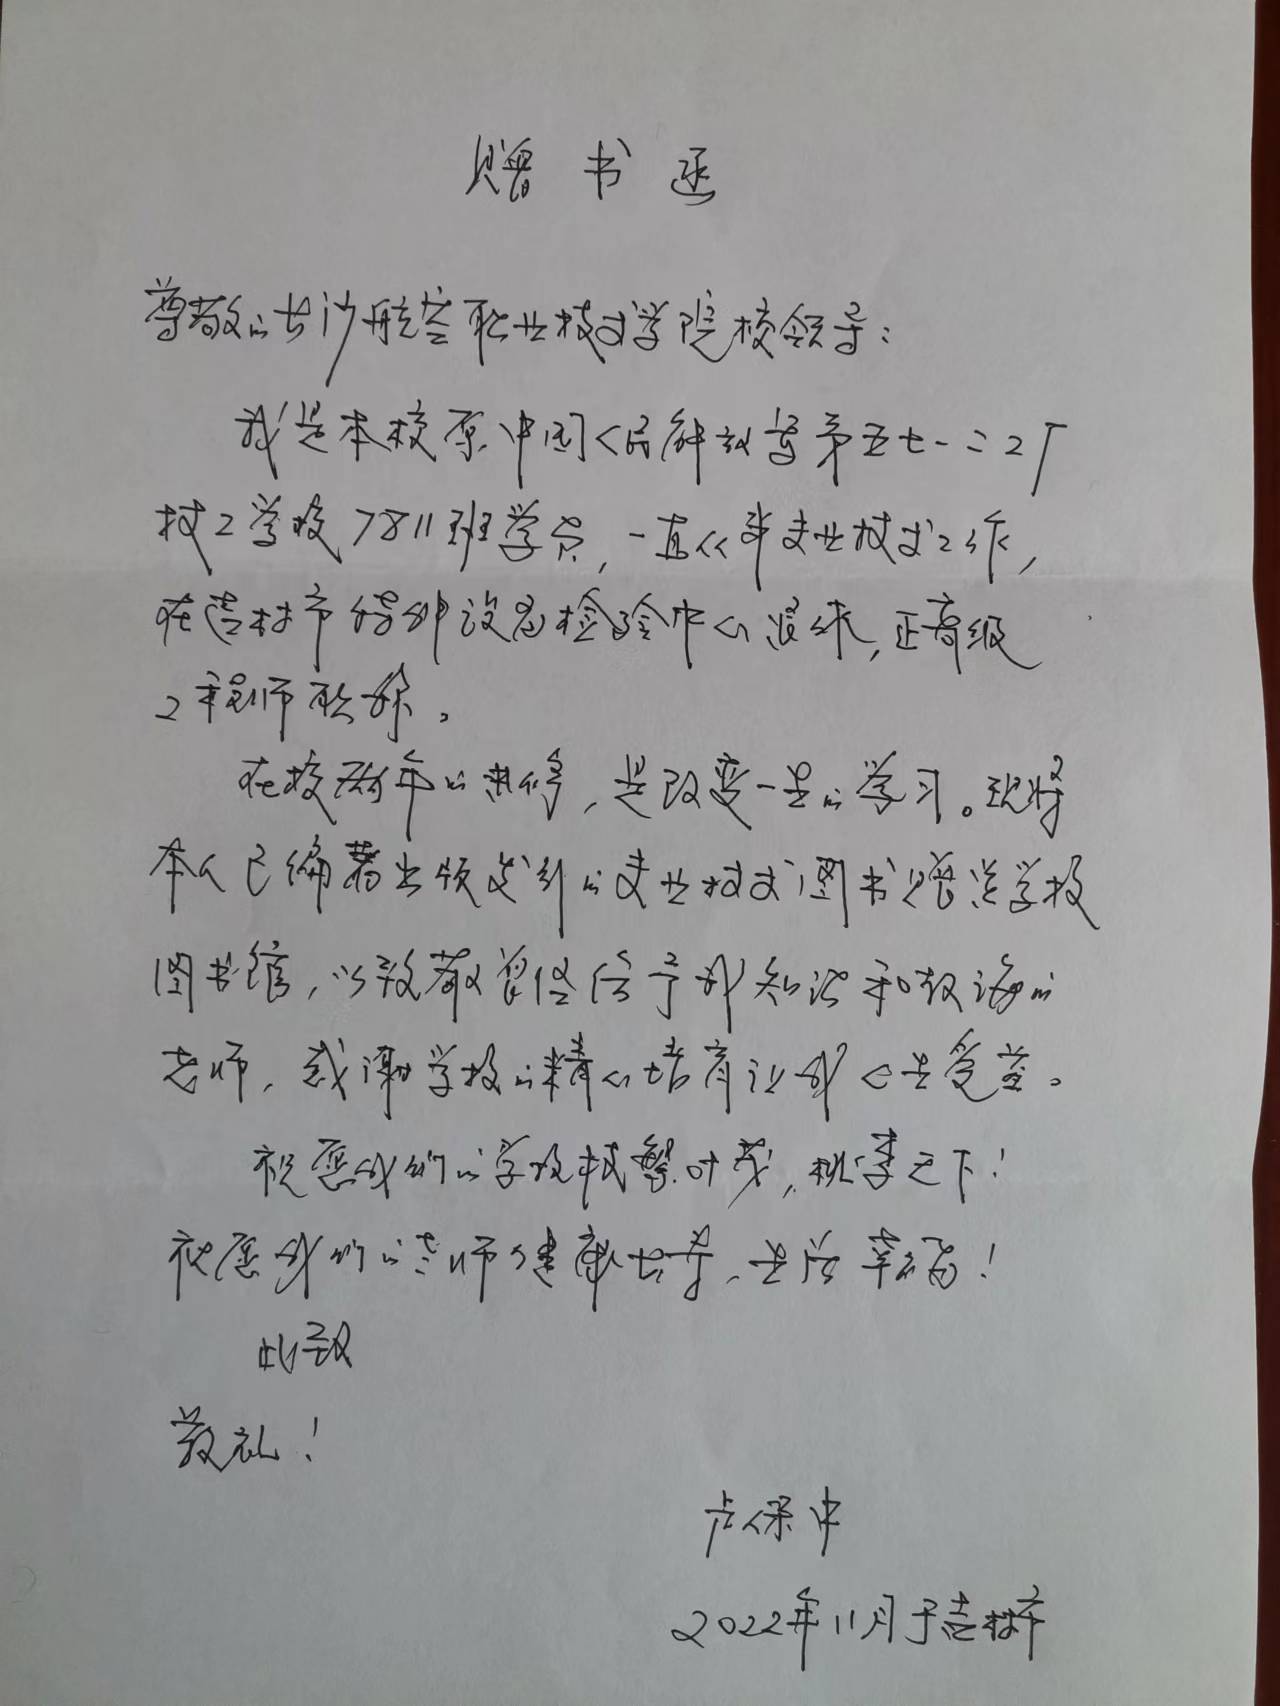 赠书函
尊敬的长沙航空职业技术学院校领导：
我是本校原中国人民解放军第五七一二工厂
技工学校7811班学员，一直从事专业技术工作，
在吉林市特种设备检验中心退休，正高级
工程师职称。
在校两年的进修，是改变一生的学习。现将
本人已编著出版发行的专业技术图书赠送学校
图书馆，以致敬曾经传予我知识和教诲的
老师，感谢学校的精心培育让我一生受益。
祝愿我们的学校枝繁叶茂，桃李天下！
祝愿我们的老师健康长寿，生活幸福！
此致
敬礼！
卢保中
2022年11月于吉林市